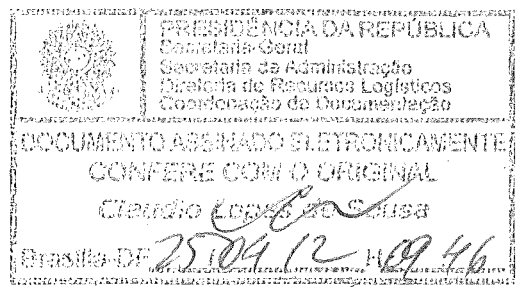 PRESIDÊNCIA DA REPÚBLICA
Secretaria-Geral
Secretaria de Administração
Diretoria de Recursos Logísticos
Coordenação de Documentação
DOCUMENTO ASSINADO ELETRONICAMENTE
CONFERE COM O ORIGINAL
Claudio Lopes de Sousa
Brasília-DF 25/04/12 09 46